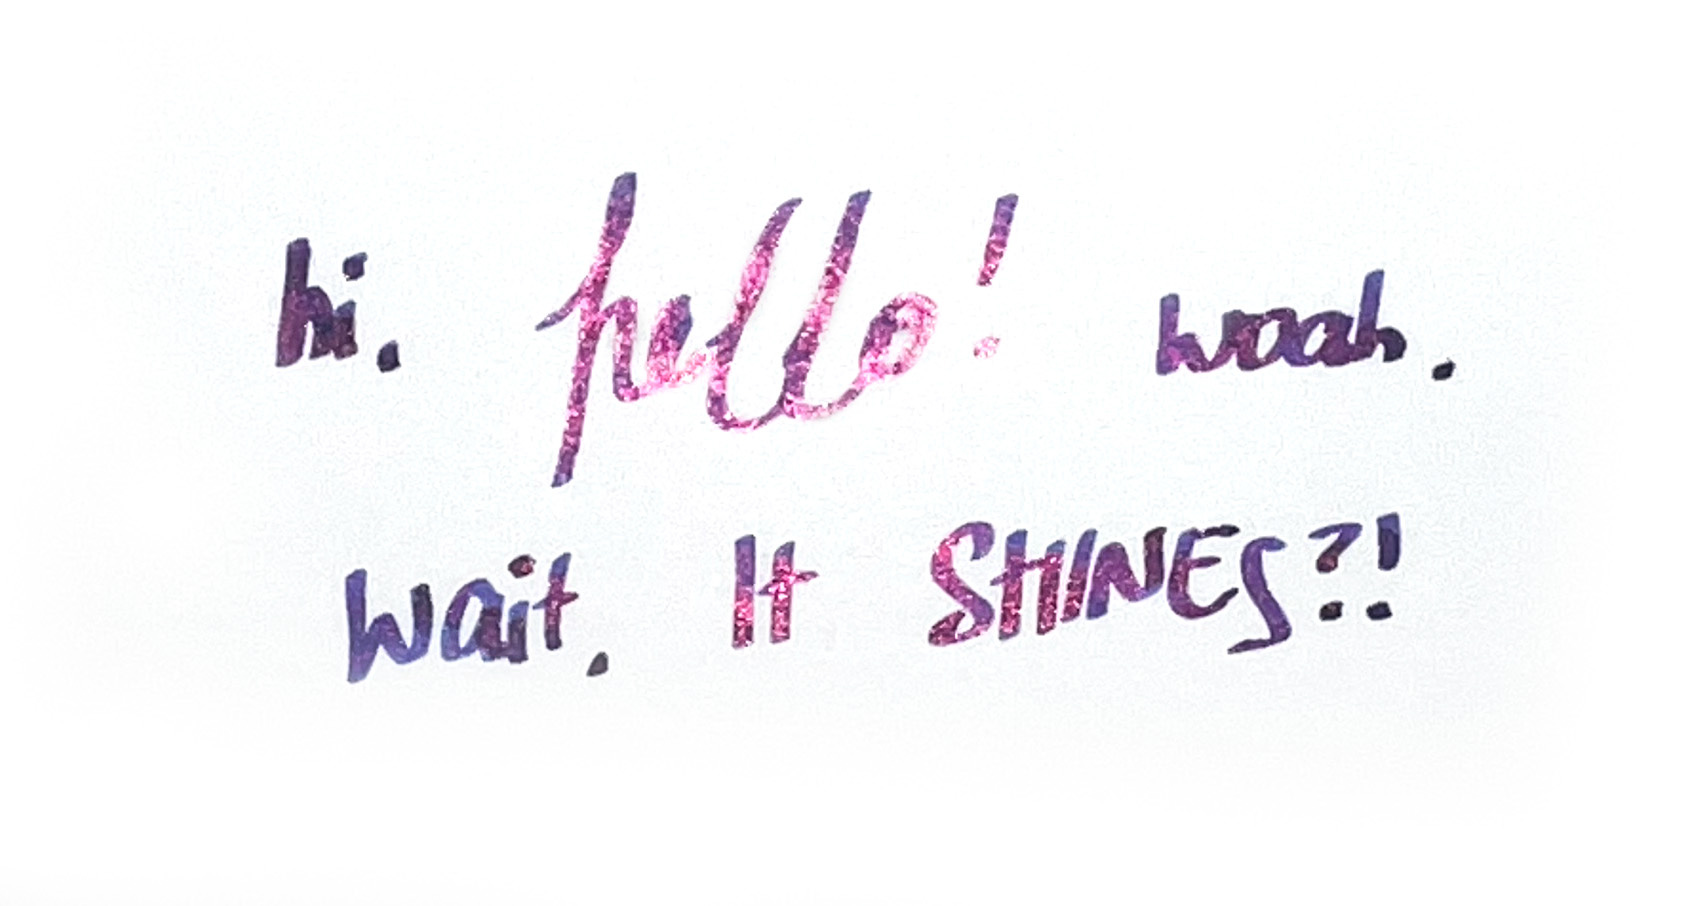 hi. hello! woah.
wait. It SHINES?!